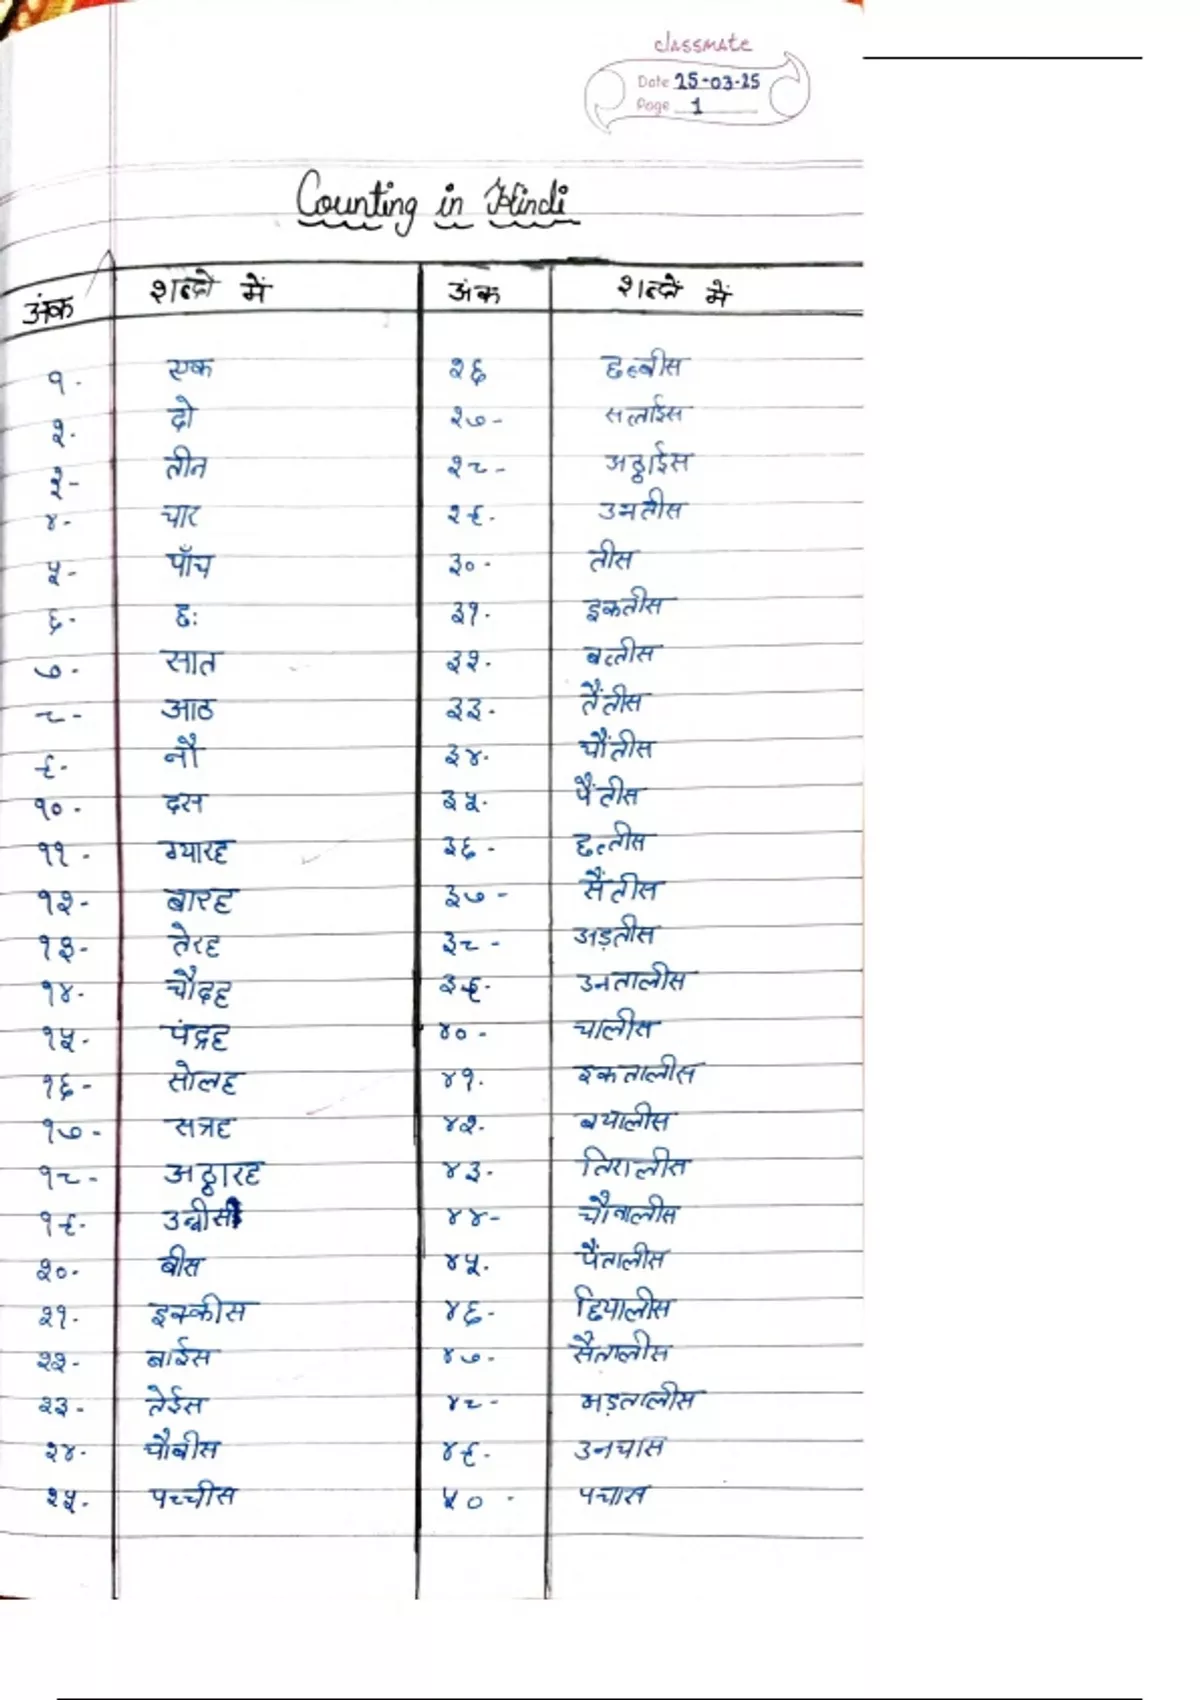 classmate
Date 25-03-25
Page 1
Counting in Hindi
अंक शब्दो में अंक शब्दों में
१. एक २६ छब्बीस
२. दो २७- सत्ताईस
३- तीन २८- अठ्ठाईस
४- चार २९. उनतीस
५- पाँच ३०- तीस
६- छः ३१. इकतीस
७- सात ३२. बत्तीस
८- आठ ३३- तैंतीस
९- नौ ३४- चौंतीस
१०- दस ३५- पैंतीस
११- ग्यारह ३६- छत्तीस
१२- बारह ३७- सैंतीस
१३- तेरह ३८- अड़तीस
१४- चौदह ३९- उनतालीस
१५- पंद्रह ४०- चालीस
१६- सोलह ४१. इकतालीस
१७- सत्रह ४२- बयालीस
१८- अठ्ठारह ४३- तिरालीस
१९- उन्नीस ४४- चौवालीस
२०- बीस ४५- पैंतालीस
२१- इक्कीस ४६- छियालीस
२२- बाईस ४७- सैतालीस
२३- तेईस ४८- अड़तालीस
२४- चौबीस ४९- उनचास
२५- पच्चीस ५० - पचास